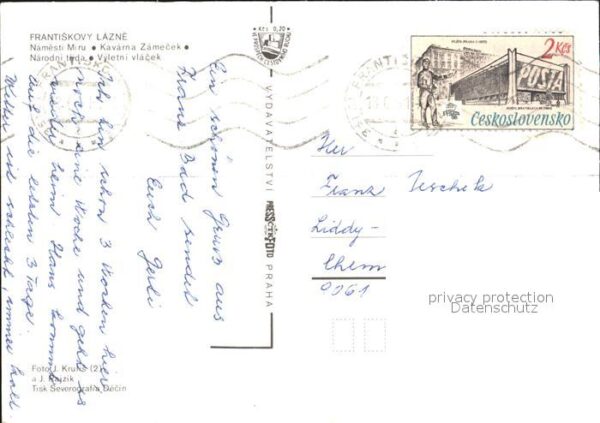 FRANTIŠKOVY LÁZNĚ
Náměstí Míru • Kavárna Zámeček •
Národní třída • Výletní vláček
Kčs 0,20
VYDAVATELSTVÍ PRESSFOTO PRAHA
2 Kčs
POŠTA
Československo
Her
Franz Jeschek
Liddy-
Chem
9061
privacy protection
Datenschutz
Ein schönen Gruß aus
Franz Bad sendet
Euch Gerli
Ich bin schon 3 Wochen hier
noch eine Woche und geht es
wieder heim. Hans kommt
auf die letzten 3 Tage.
Wetter ist schlecht, immer kalt
Foto J. Krulis (2)
a J. Rajzík
Tisk Severografia Děčín